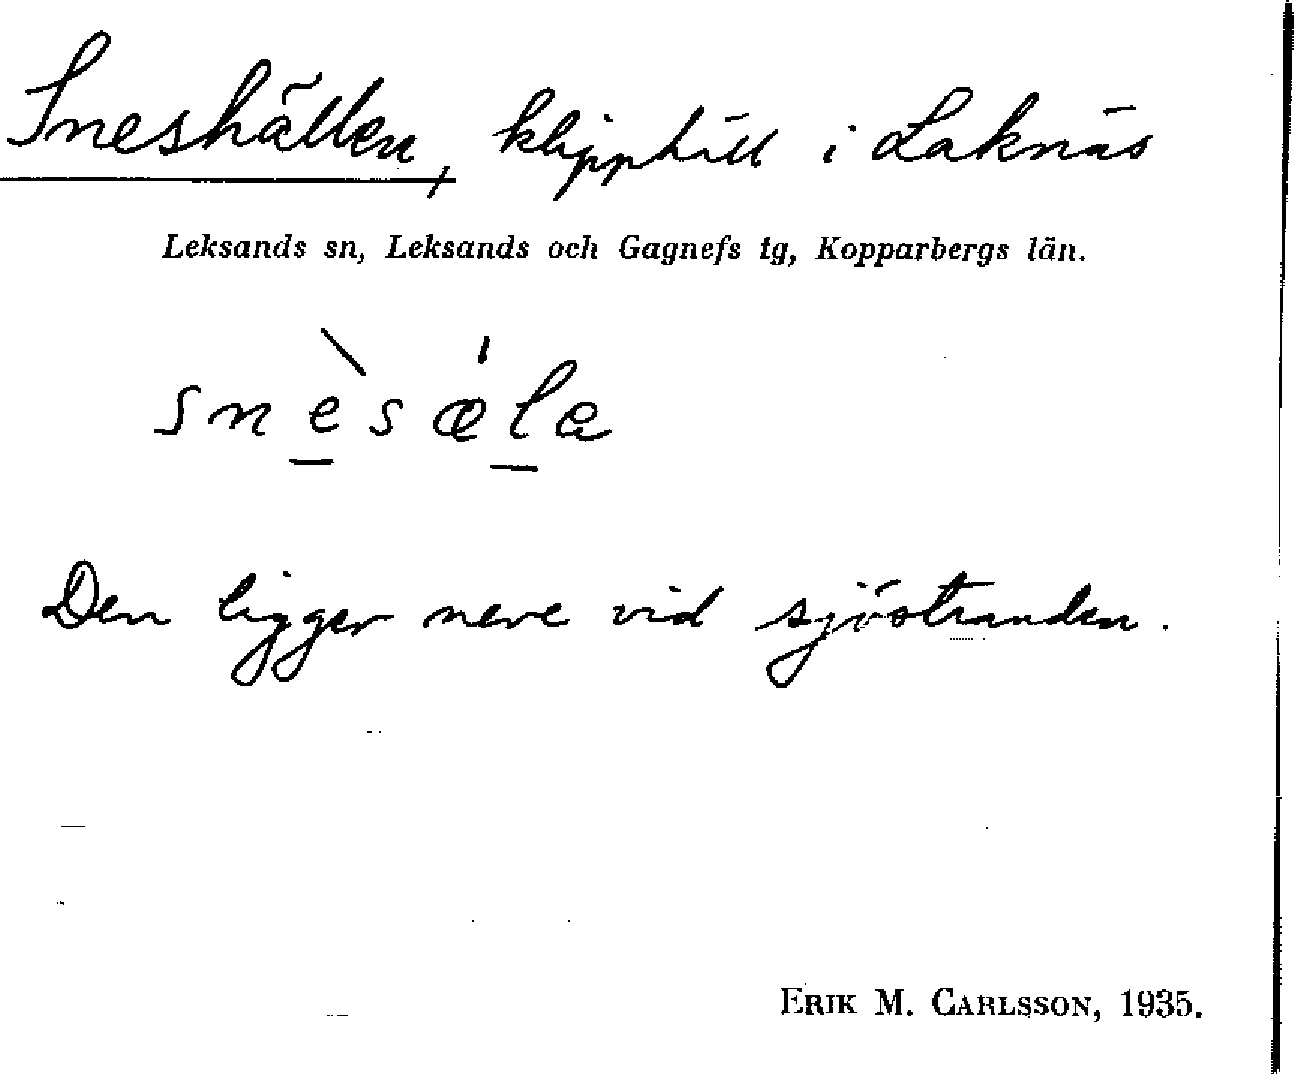 Sneshällen, klipphäll i Laknäs
Leksands sn, Leksands och Gagnefs tg, Kopparbergs län.
snèsæ̍la
Den ligger nere vid sjöstranden.
ERIK M. CARLSSON, 1935.